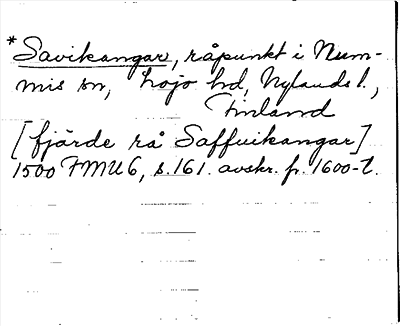 *Savikangar, råpunkt i Num-
mis sn, Lojo hd, Nylands l.,
Finland
[fjärde rå Saffuikangar]
1500 FMU 6, s. 161. avskr. fr. 1600-t.